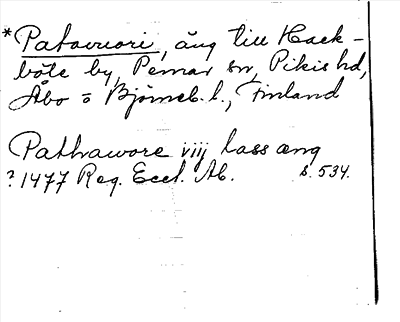 *Patavuori, äng till Hack-
böle by, Pemar sn, Pikis hd,
Åbo o Björneb. l., Finland
Pathawore viij lass æng
? 1477 Reg. Eccl. Ab. s. 534.